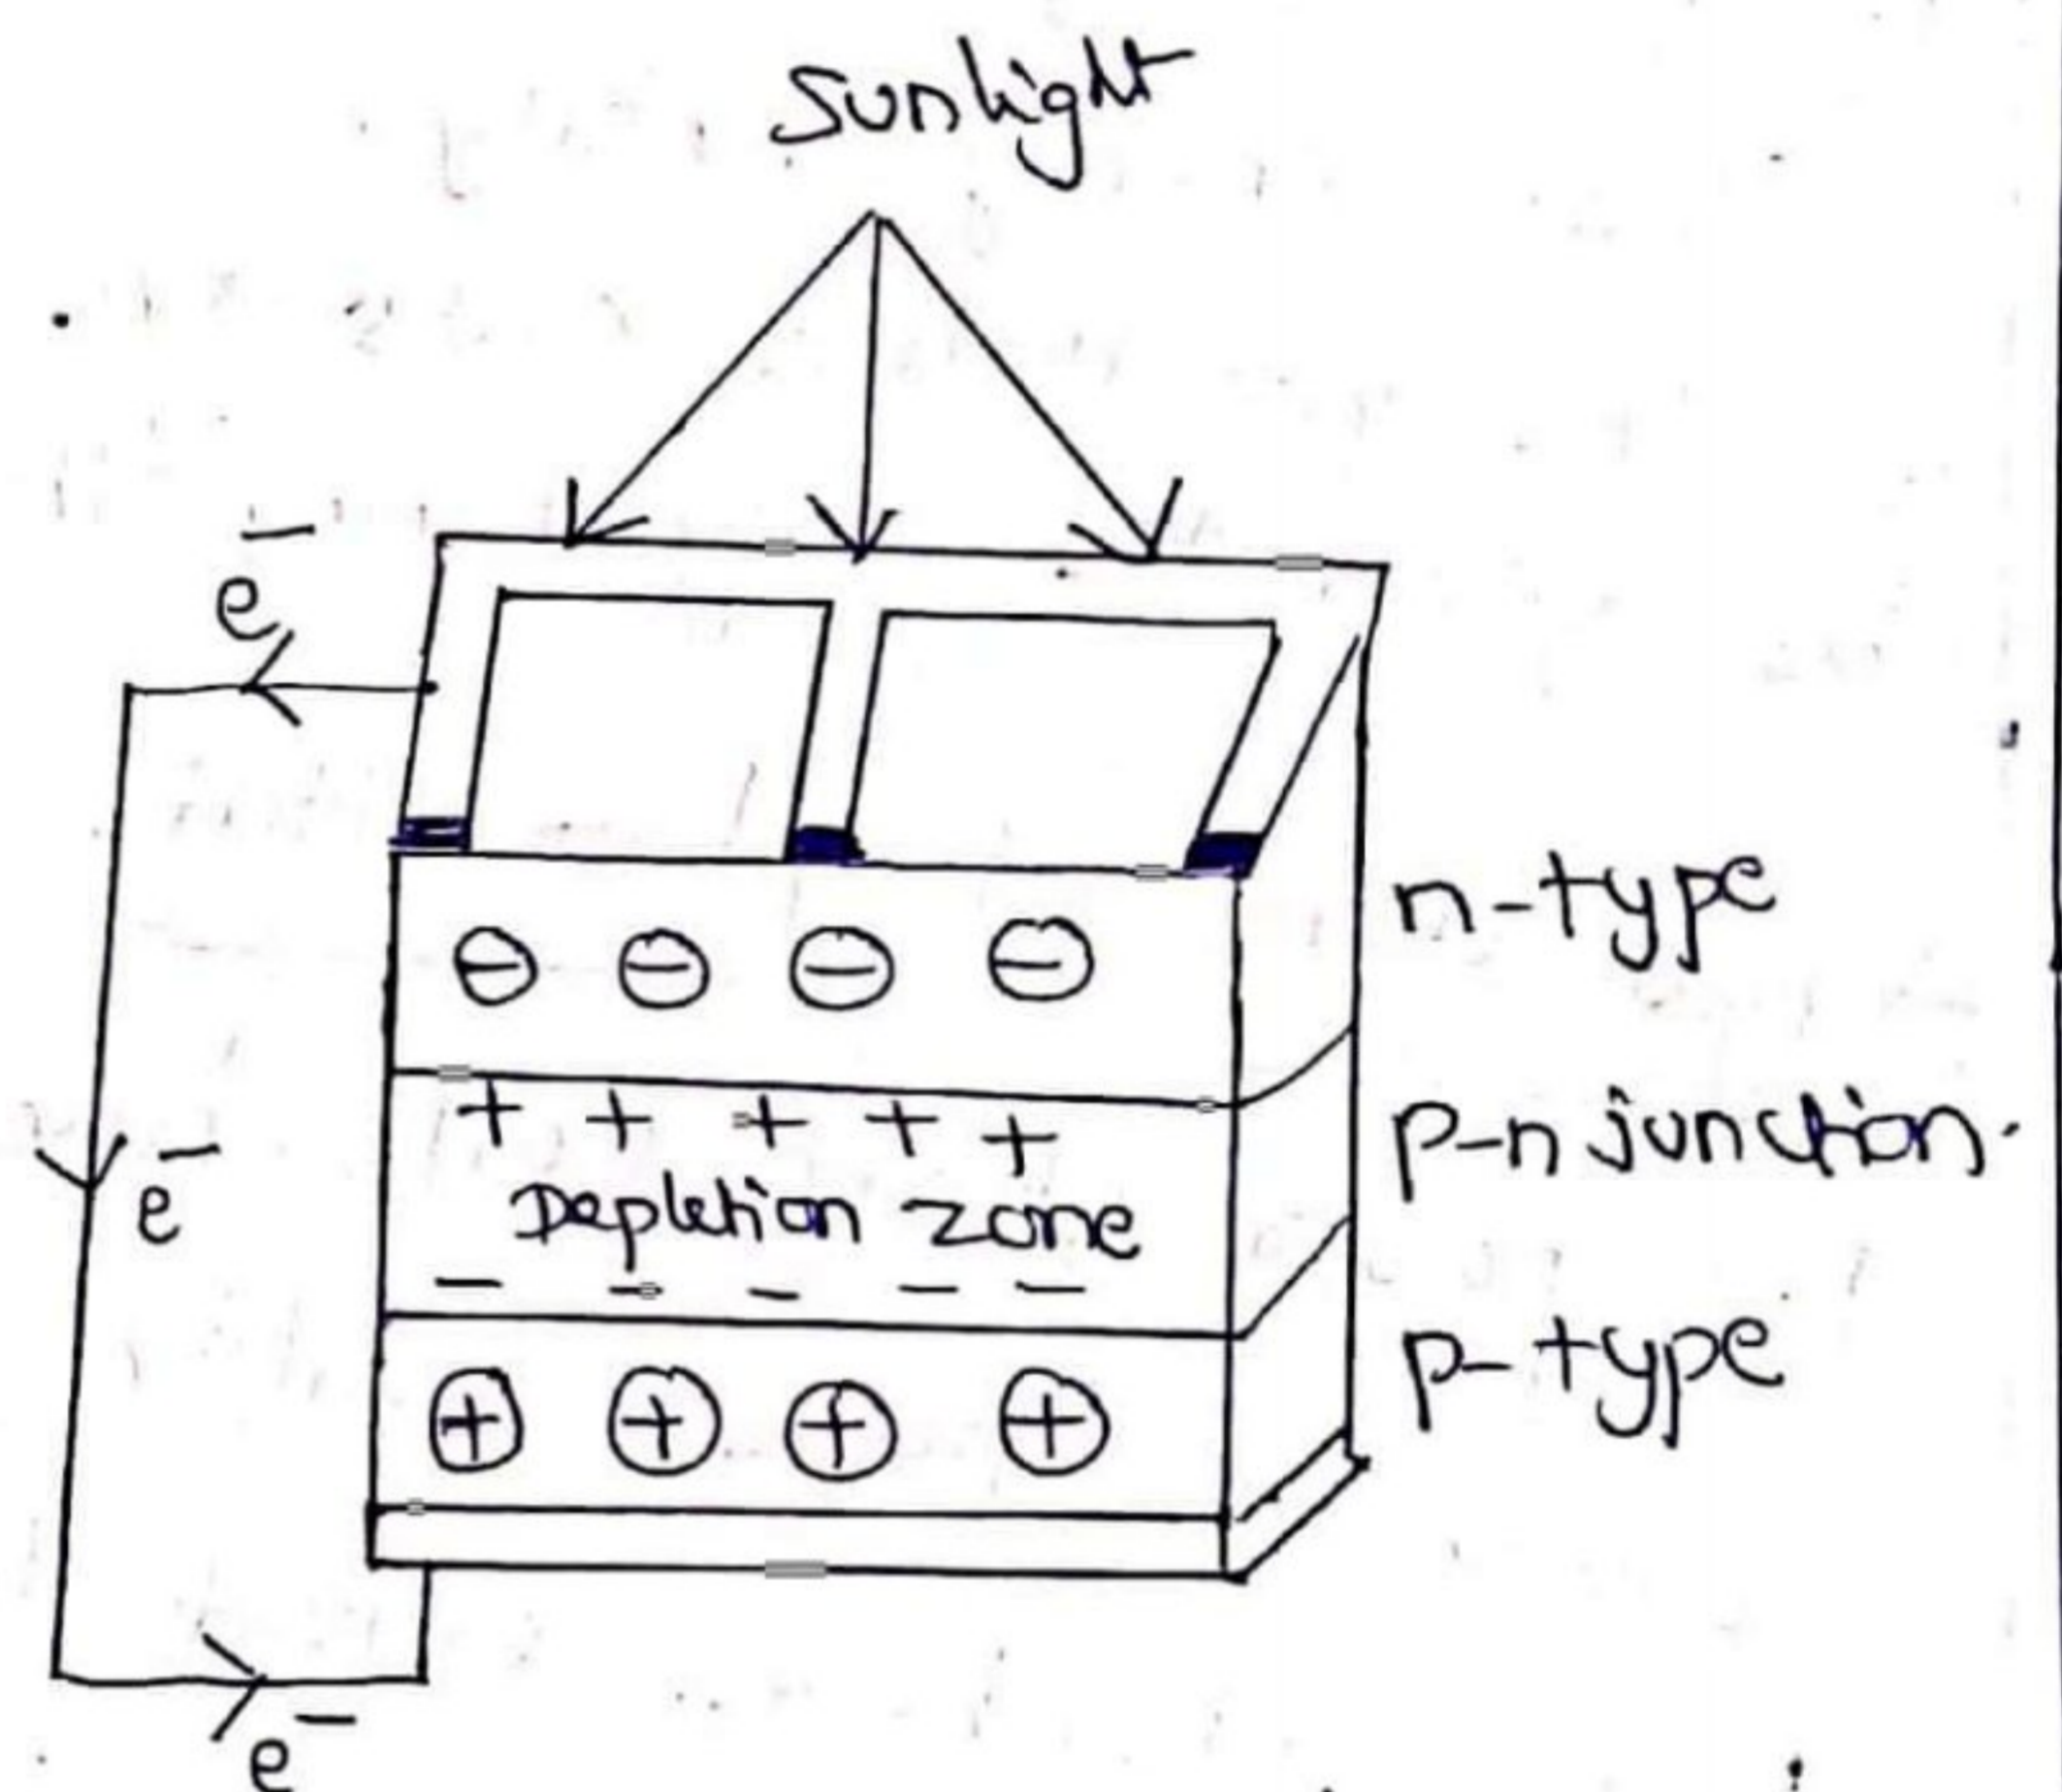 sunlight
e⁻
n-type
⊖ ⊖ ⊖ ⊖
p-n junction.
+ + + + +
e⁻
Depletion zone
− − − − −
p-type
⊕ ⊕ ⊕ ⊕
e⁻